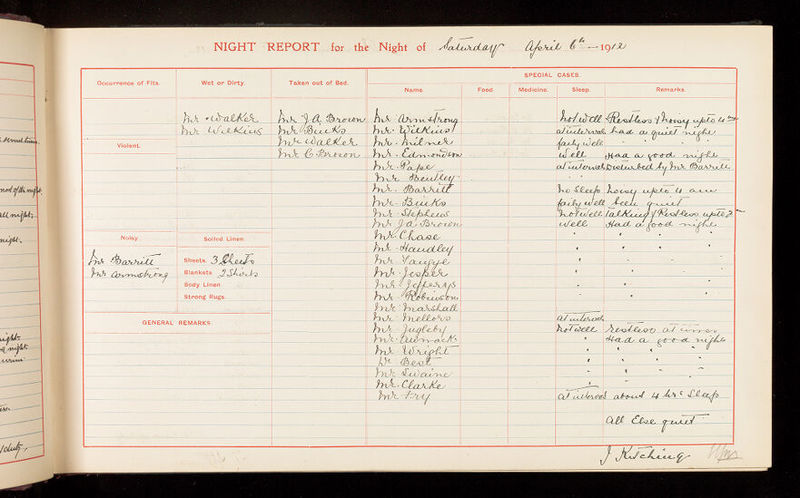 NIGHT REPORT for the Night of Saturday April 6th 1912
SPECIAL CASES.
Occurrence of Fits. Wet or Dirty. Taken out of Bed. Name. Food. Medicine. Sleep. Remarks.
Mr Walker Mr J A Brown Mr Armstrong not well Restless & noisy upto 4
Mr Wilkins Mr Binks Mr Wilkins at intervals had a quiet night
Violent. Mr Walker Mr Milner fairly well
Mr C Brown Mr Edmondson well Had a good night
Mr Pape at intervals Disturbed by Mr Barritt
Mr Bentley
Mr Barritt no sleep noisy upto 4 am
Mr Binks fairly well been quiet
Mr Stephens not well talking & Restless upto
Mr J A Brown well Had a good night
Noisy. Soiled Linen. Mr Chase
Mr Handley
Mr Barritt Sheets. 3 Sheets Mr Tangye
Mr Armstrong Blankets. 2 Shirts Mr Jesper
Body Linen. Mr Jefferys
Strong Rugs. Mr Robinson
Mr Marshall
GENERAL REMARKS. Mr Mellors at intervals
Mr Ingleby not well restless at times
Mr Had a good night
Mr Wright
Best
Mr Swaine
Mr Clarke
Mr Fry at intervals about 4 hrs sleep
All Else quiet
J Kitching